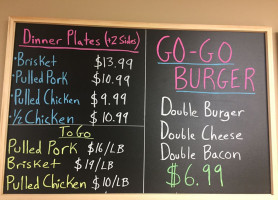 Dinner Plates (+2 Sides)
• Brisket $13.99
• Pulled Pork $10.99
• Pulled Chicken $9.99
• ½ Chicken $10.99
To Go
Pulled Pork $16/LB
Brisket $19/LB
Pulled Chicken $10/LB
GO-GO
BURGER
Double Burger
Double Cheese
Double Bacon
$6.99